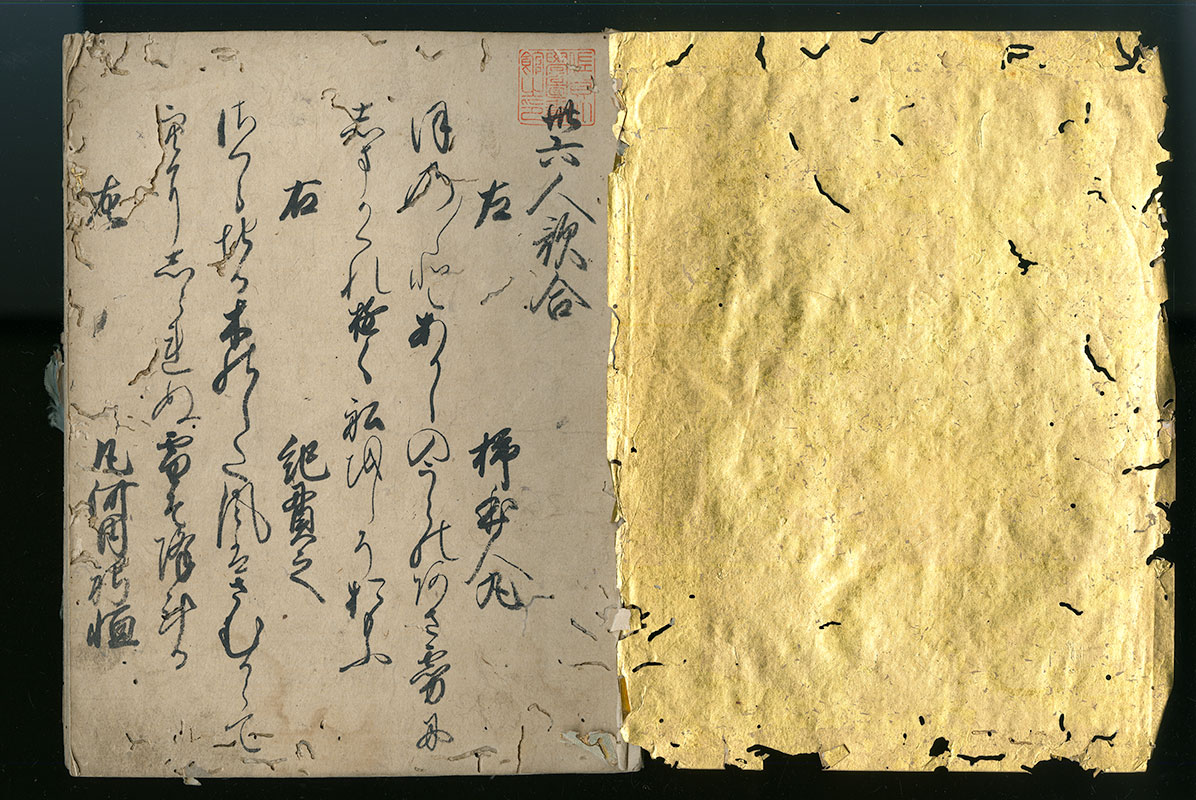 卅六人歌合
左 柿本人丸
ほの〳〵とあかしのうらのあさ霧に
しまかくれゆく舩をしそおもふ
右 紀貫之
さくらちる木のした風はさむからて
空にしられぬ雪そ降ける
左 凡河内躬恒